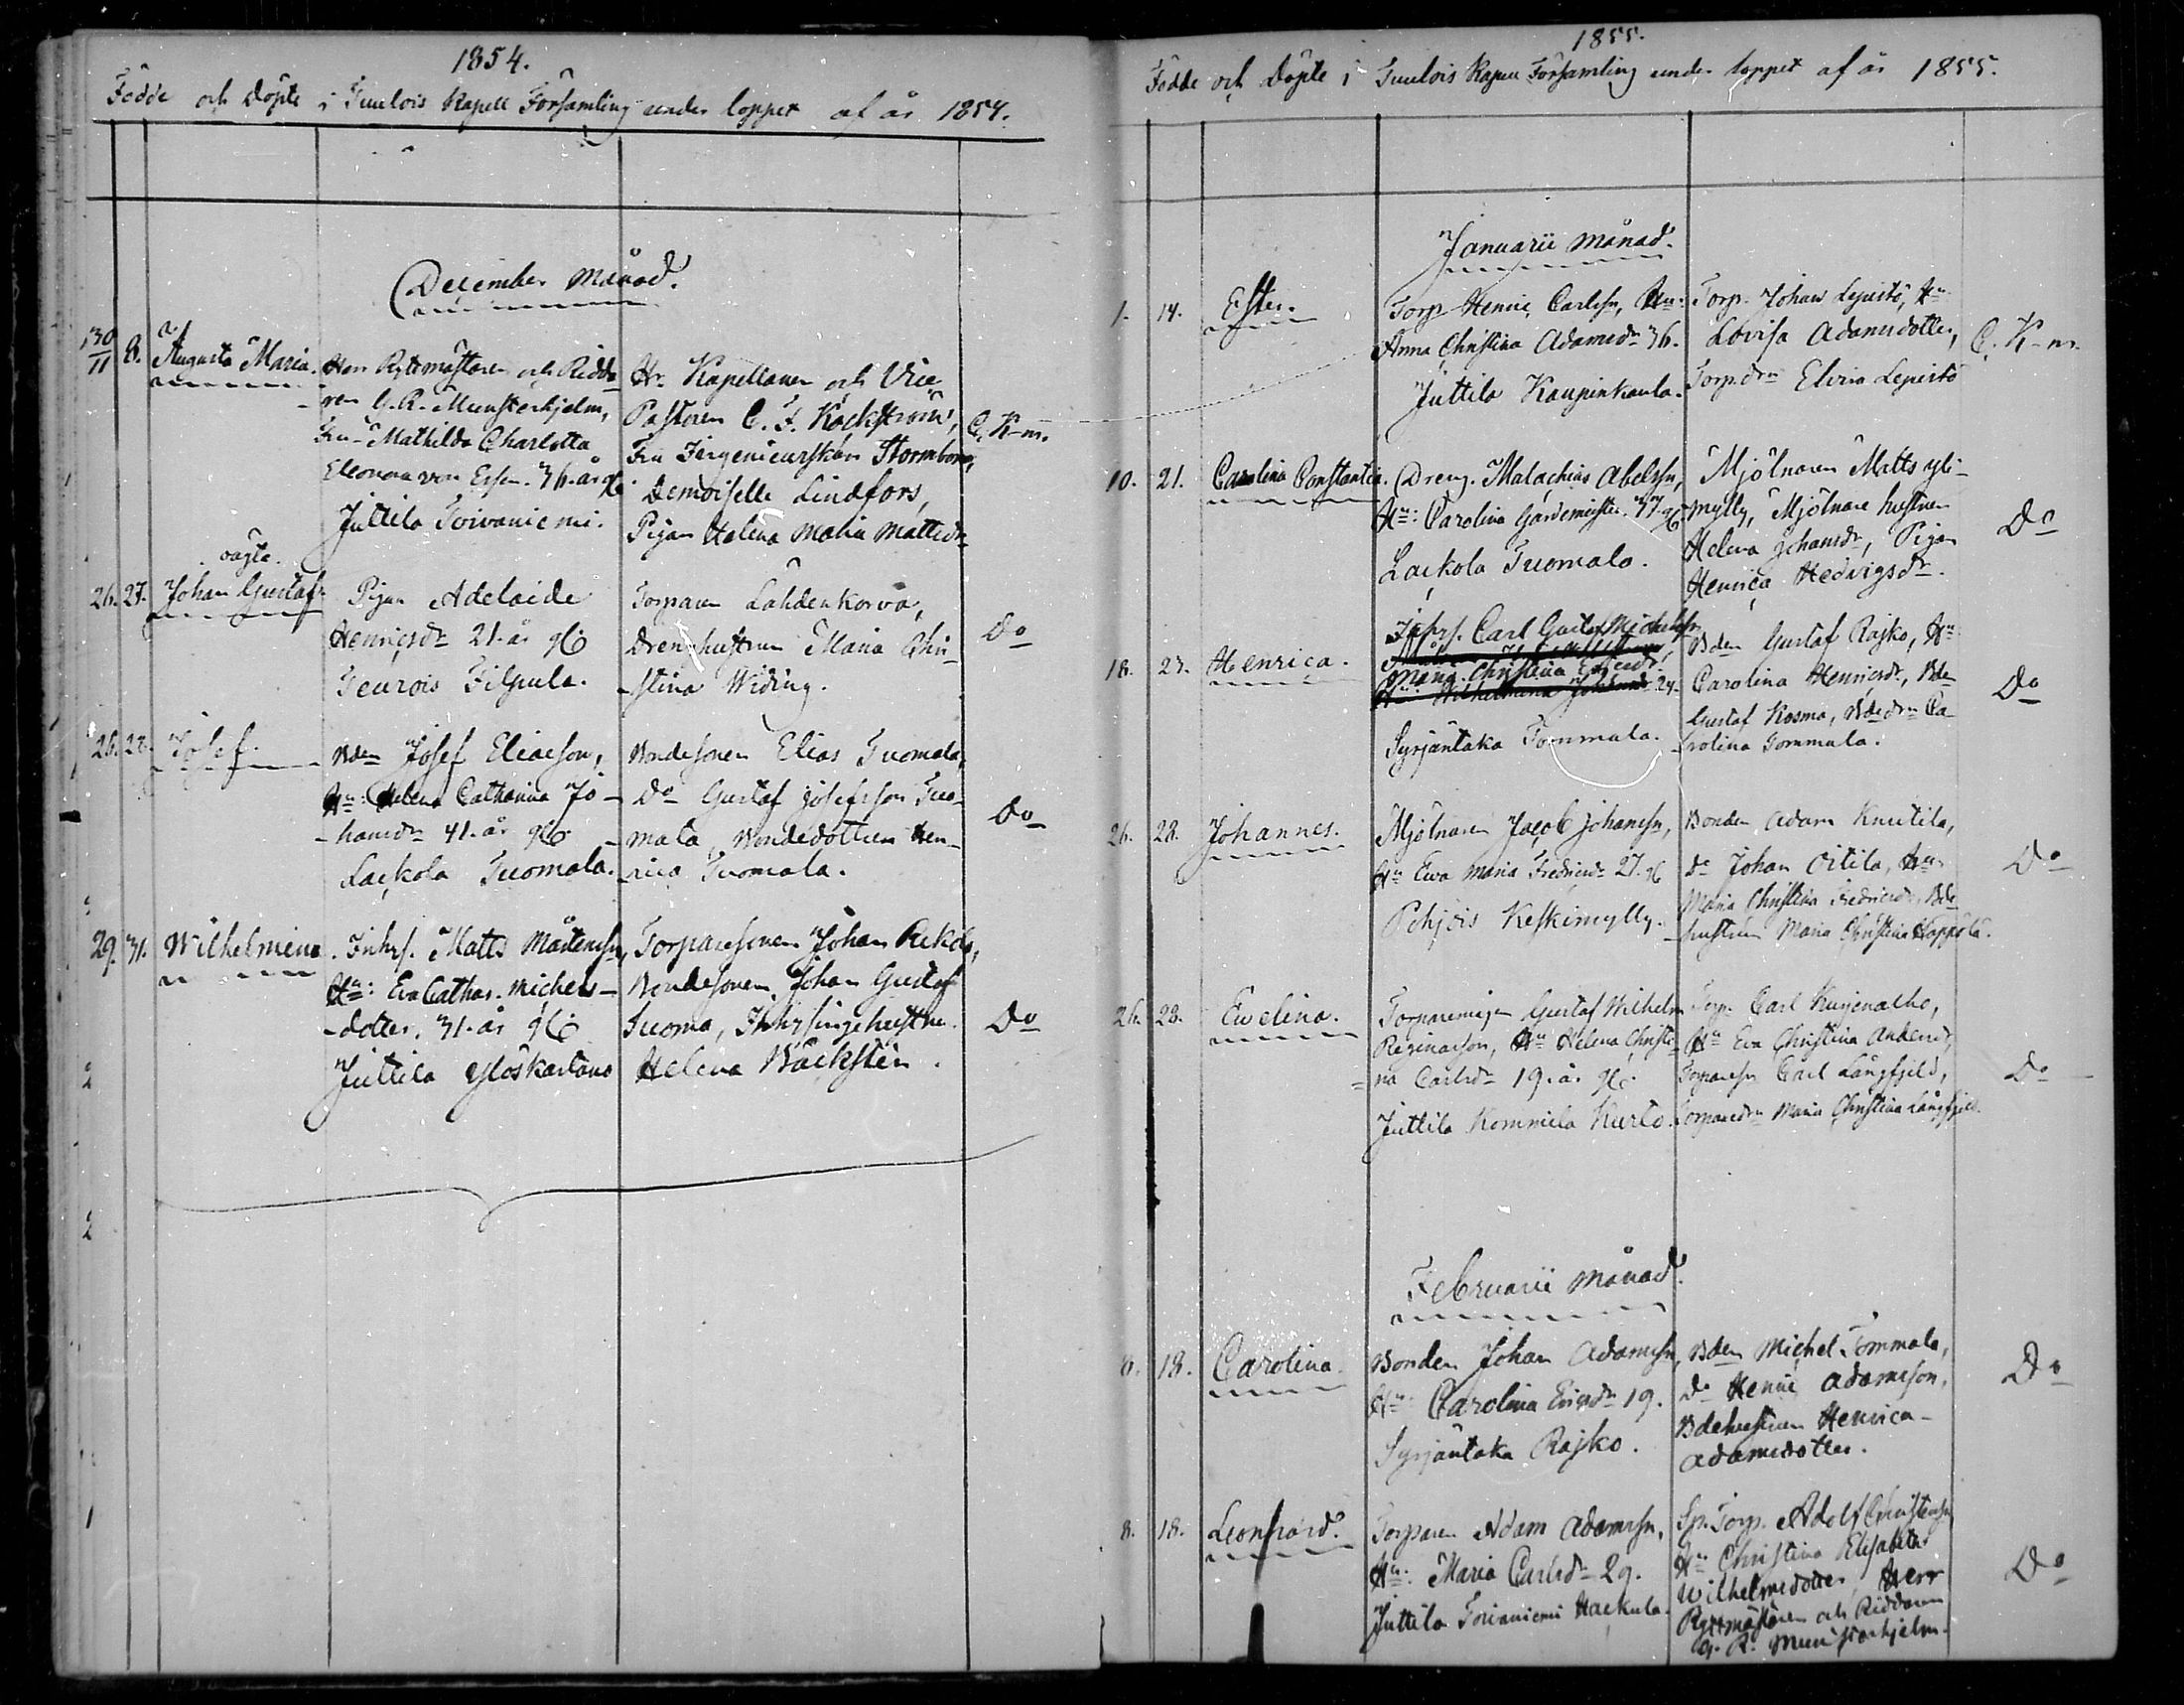 1854.
Födde och Döpte i Tuulois Kapell Församling under loppet af år 1854.
December Månad.
30/11 8. Augusta Maria.
Herr Ryttmästaren och Ridda-
ren G. R. Munsterhjelm,
Fru Mathilda Charlotta
Eleonora von Essen. 36. år
Juttila Toivaniemi.
Hr. Kapellanen och Vice
Pastoren C. F. Kockström,
Fru Ingenieurskan Stormbom,
Demoiselle Lindfors,
Pigan Helena Maria Mattsdr
C. K-m.
oägta.
26. 27. Johan Gustaf
Pigan Adelaide
Henricsdr 21. år
Teurois Filpula.
Torparen Lahdenkorva,
Drenghustrun Maria Chri-
stina Widing.
Do
26. 28. Josef.
Bden Josef Eliaeson,
Hu: Helena Catharina Jo-
hansdr 41. år
Lackola Tuomala.
Bondesonen Elias Tuomala,
Do Gustaf Josefsson Tuo-
mala, Bondedottren Hen-
rica Tuomala.
Do
29. 31. Wilhelmina
Inhs. Matts Mårtenssn,
Hu: Eva Cathar. Michels-
dotter, 31. år
Juttila Ylöskartano
Torparesonen Johan Rekola,
Bondesonen Johan Gustaf
Tuoma, Inhysingehustru
Helena Bäcksten.
Do
1855.
Födde och Döpte i Tuulois Kapell Församling under loppet af år 1855.
Januarii Månad.
1. 14. Ester.
Torp Henric Carlssn, Hu:
Anna Christina Adamsdr 36.
Juttila Kaupinkaula.
Torp. Johan Lepistö, Hu
Lovisa Adamsdotter,
Torp.drn Elvira Lepistö
C. K-m.
10. 21. Carolina Constantia.
Dreng. Malachias Abelssn,
Hu: Carolina Gardemeister.
Lackola Tuomala.
Mjölnaren Matts Yli-
mylly, Mjölnare hustrun
Helena Johansdr, Pigan
Henrica Hedvigsdr.
Do
18. 23. Henrica.
Inhs. Carl Gustaf Michelssn
Maria Christina
Wilhelmina 24.
Syrjäntaka Tommula.
Bden Gustaf Rajko, Hu
Carolina Henricsdr, Bden
Gustaf Kosma, Bdedrn Ca-
rolina Tommula.
Do
26. 28. Johannes.
Mjölnaren Jacob Johanssn,
Hu Ewa Maria Fredricsdr 27.
Pohjois Keskimylly.
Bonden Adam Knutila,
Do Johan Oitila, Hu
Maria Christina Fredricsdr, Bde
hustrun Maria Christina Hoppula.
Do
26. 28. Ewelina.
Torparemågen Gustaf Wilhelm
Reginason, Hu Helena Christi-
na Carlsdr 19. år
Juttila Kommila Kurto.
Torp. Carl Kurjenalho,
Hu Eva Christina Andersdr,
Torparesn Carl Långfjeld,
Torparedrn Maria Christina Långfjeld.
Do
Februarii Månad.
8. 18. Carolina.
Bonden Johan Adamssn,
Hu: Carolina Ericsdr 19.
Syrjäntaka Rajko.
Bden Michel Tommola,
Do Henric Adamsson,
Bdehustrun Henrica
Adamsdotter.
Do
8. 18. Leonhard.
Torparen Adam Adamssn,
Hu: Maria Carlsdr 29.
Juttila Toivaniemi Hackula.
Sp. Torp. Adolf Christerssn
Hu Christina Elisabeta
Wilhelmsdotter, Herr
Ryttmästaren och Riddaren
G. R. Munsterhjelm.
Do